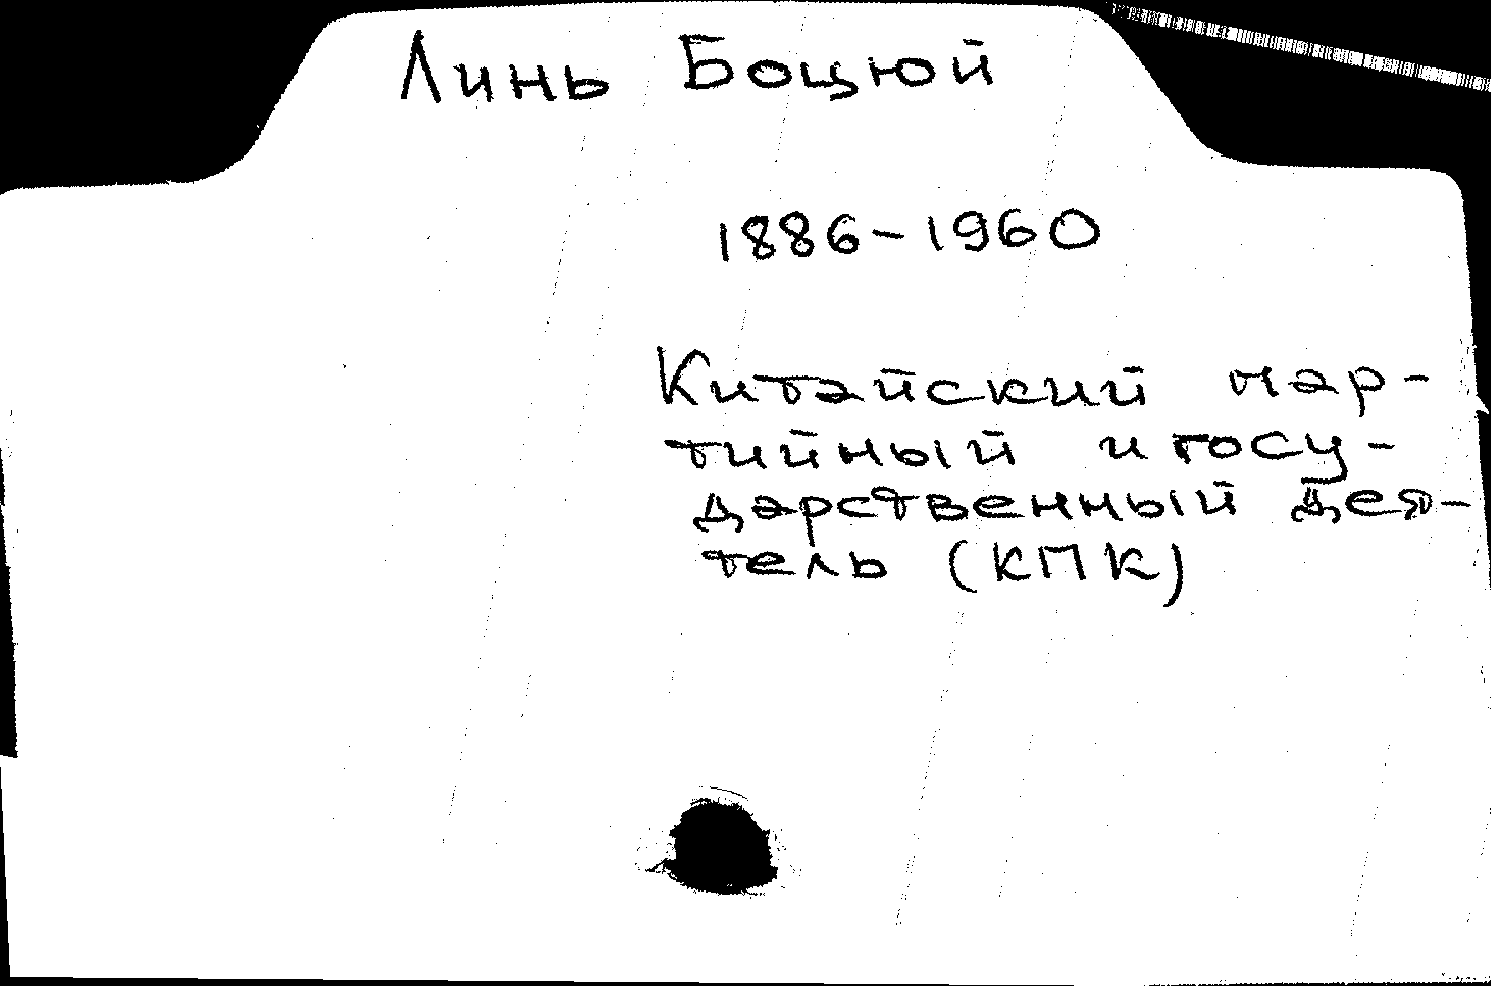 Линь Боцюй
1886-1960
Китайский пар-
тийный и госу-
дарственный дея-
тель (КПК)